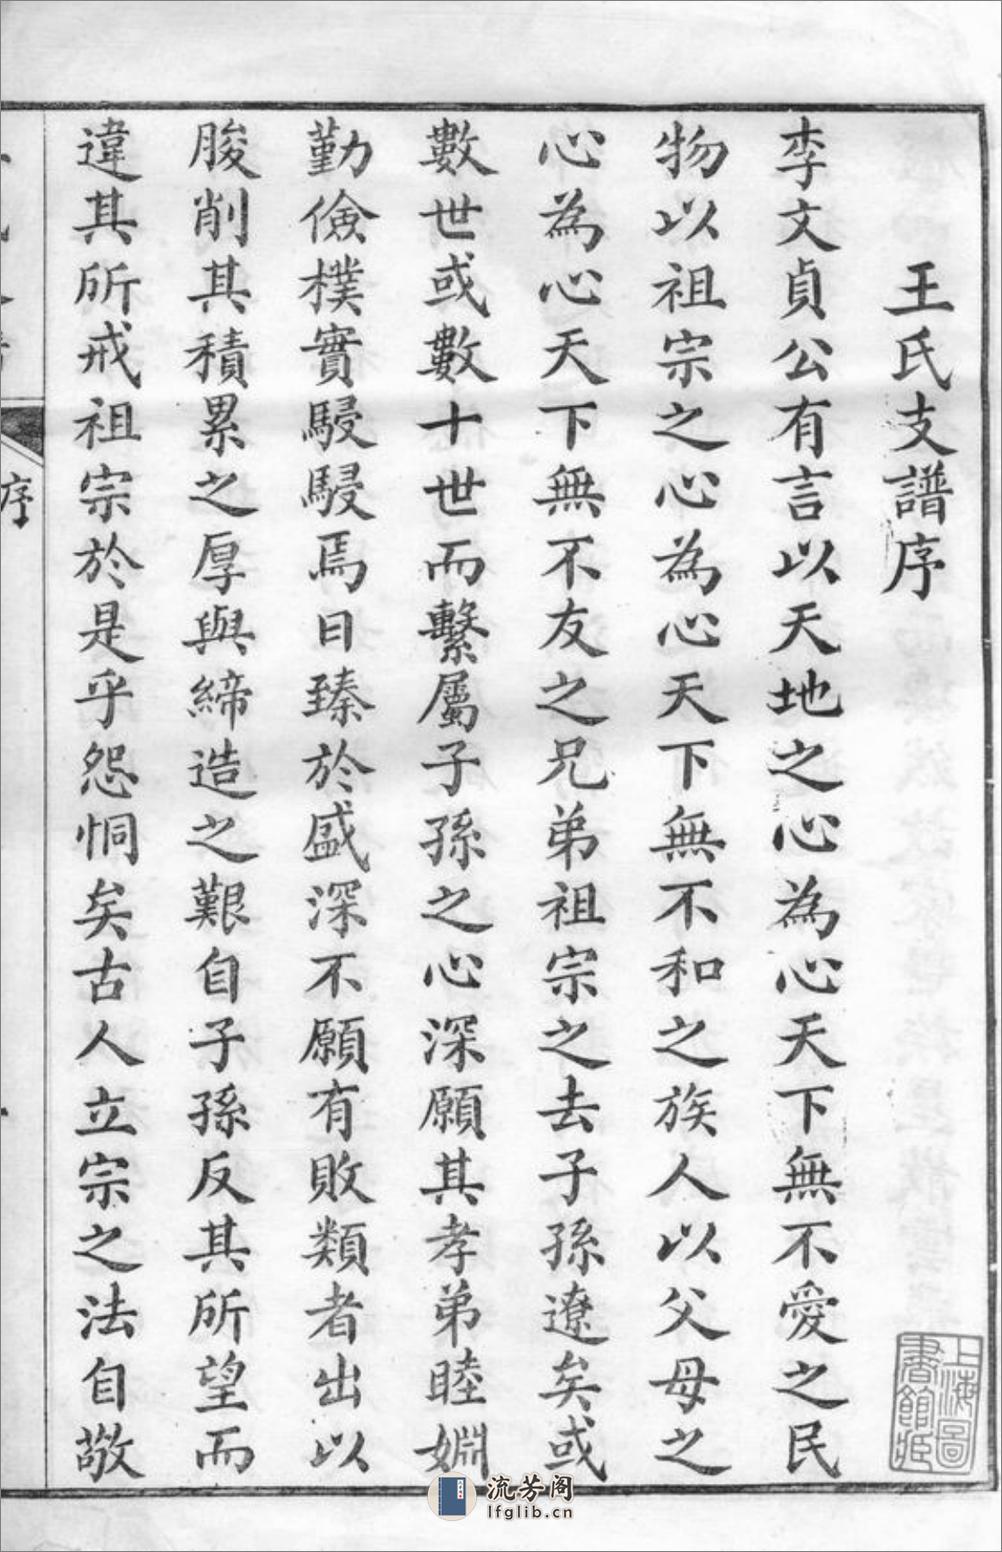 王氏支譜序
李文貞公有言以天地之心為心天下無不愛之民
物以祖宗之心為心天下無不和之族人以父母之
心為心天下無不友之兄弟祖宗之去子孫遼矣或
數世或數十世而繫屬子孫之心深願其孝弟睦婣
勤儉樸實駸駸焉日臻於盛深不願有敗類者出以
朘削其積累之厚與締造之艱自子孫反其所望而
違其所戒祖宗於是乎怨恫矣古人立宗之法自敬
序
上海圖
書館藏
流芳阁
lfglib.cn